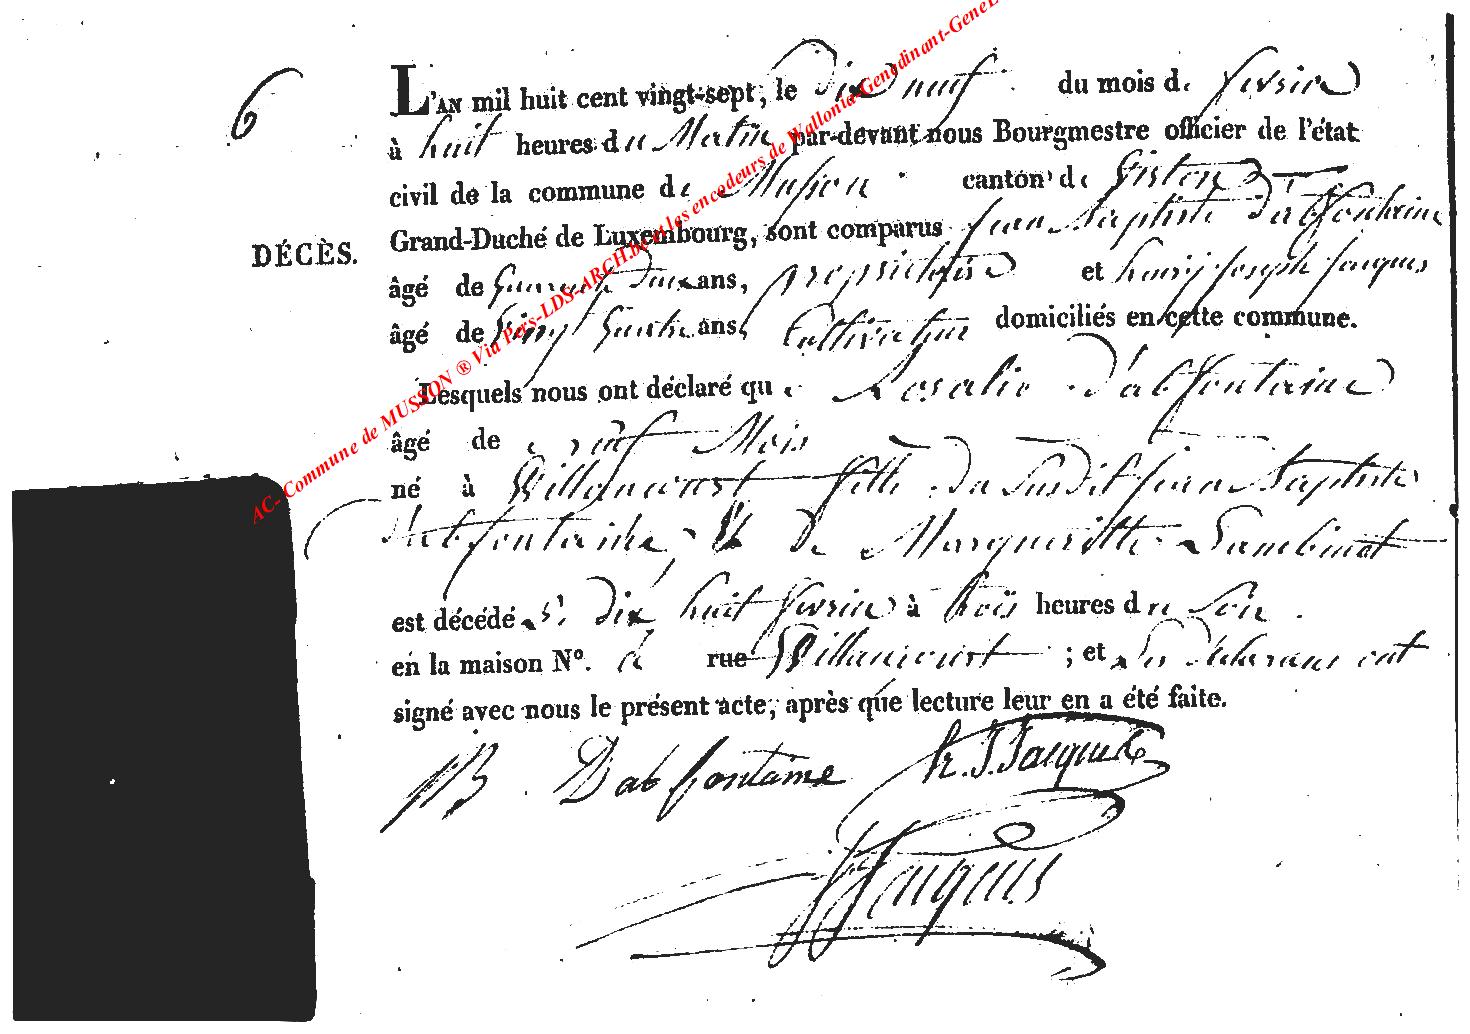 6
L'AN mil huit cent vingt-sept, le dix neuf du mois de fevrier
à huit heures du Matin par-devant nous Bourgmestre officier de l'état
civil de la commune de Musson canton de
Grand-Duché de Luxembourg, sont comparus jean Baptiste Dabfontaine
DÉCÈS.
âgé de Quarante Deux ans, propriétaire et henry joseph jacques
âgé de Vingt Quatre ans, Cultivateur domiciliés en cette commune.
Lesquels nous ont déclaré que Rosalie Dabfontaine
âgé de neuf Mois
né à Willancourt fille du Susdit jean Baptiste
Dabfontaine, Et de Margueritte Lambinet
est décédé le dix huit fevrier à trois heures du Soir
en la maison N°. à rue Willancourt ; et les Déclarans ont
signé avec nous le présent acte, après que lecture leur en a été faite.
JB Dabfontaine h. J. Jacques
Jacques
AC- Commune de MUSSON ® Via Pers-LDS-ARCH.be et les encodeurs de Wallonia-Genedinant-GeneL